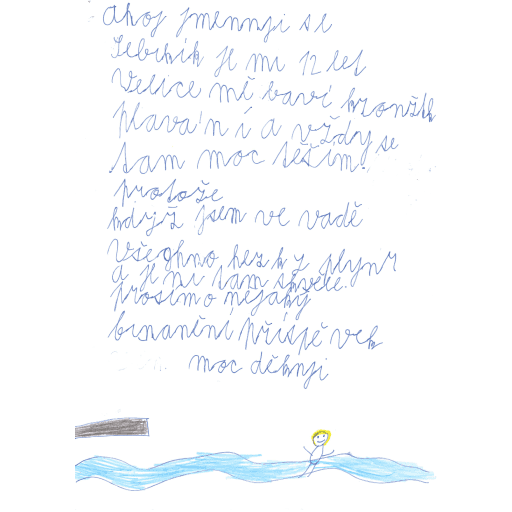 ahoj jmennji se
Sebrhik je mi 12 let
Velice mě baví kroužek
plavání a vždy se
tam moc těším.
protože
když jsem ve vadě
všeghno hezky plyne
a je mi tam skvěle.
prosím o nějaký
brnanění příspěvek
moc děknji